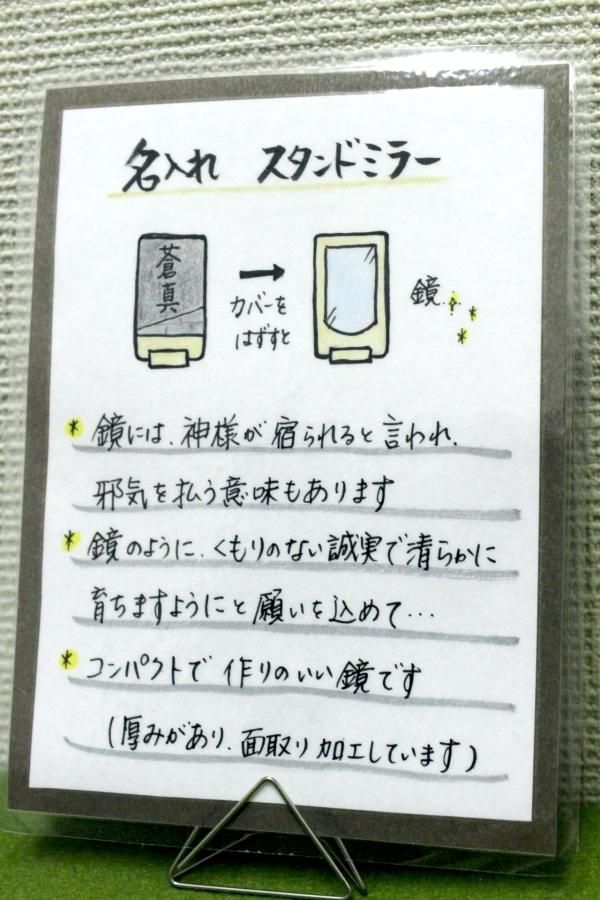 名入れ スタンドミラー
蒼真
カバーを
はずすと
鏡
*鏡には、神様が宿られると言われ、
邪気を払う意味もあります
*鏡のように、くもりのない誠実で清らかに
育ちますようにと願いを込めて…
*コンパクトで作りのいい鏡です
(厚みがあり、面取り加工しています)